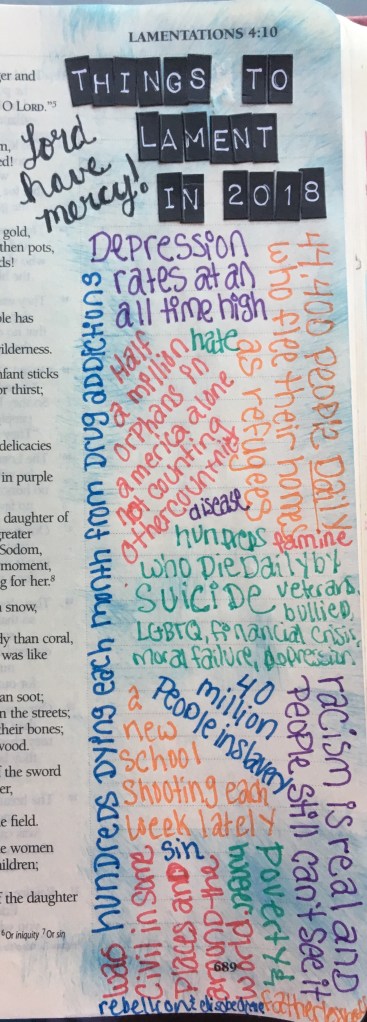 LAMENTATIONS 4:10
THINGS TO
LAMENT
IN 2018
Lord
have
mercy!
er and
O LORD."⁵
gold,
then pots,
ds!
le has
ilderness.
nfant sticks
or thirst;
delicacies
in purple
daughter of
reater
Sodom,
moment,
g for her.⁸
snow,
dy than coral,
was like
an soot;
n the streets;
heir bones;
wood.
f the sword
er,
e field.
e women
ildren;
f the daughter
⁶Or iniquity ⁷Or sin
Depression
rates at an
all time high
44,400 people Daily
who flee their homes
as refugees
hate
Half
a million
orphans in
america alone
not counting
other countries
hundreds dying each month from drug addictions
disease
famine
hundreds
who Die Daily by
suicide veterans,
bullied,
LGBTQ, financial crisis,
moral failure, depression
40
million
People in slavery
racism is real and
people still can't see it
a
new
school
shooting each
week lately
sin
war
civil in some
places and
around the
hunger
poverty &
689
rebellion &
fatherlessness